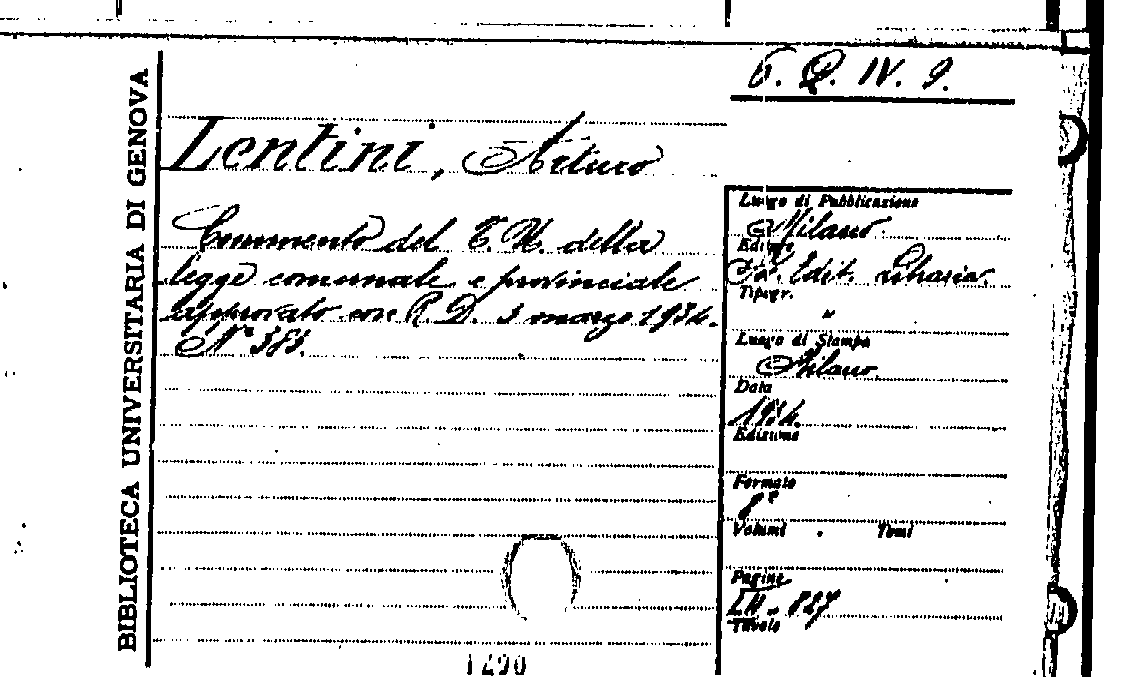 6. Q. IV. 9.
BIBLIOTECA UNIVERSITARIA DI GENOVA
Lentini, Arturo
Commento del T. U. della
legge comunale e provinciale
approvato con R. D. 3 marzo 1934.
N° 383.
Luogo di Pubblicazione
Milano.
Editore
Edit. Libraria.
Tipogr.
"
Luogo di Stampa
Milano.
Data
1934.
Edizione
Formato
8°
Volumi Tomi
Pagine
LII - 827
Tavole
1290